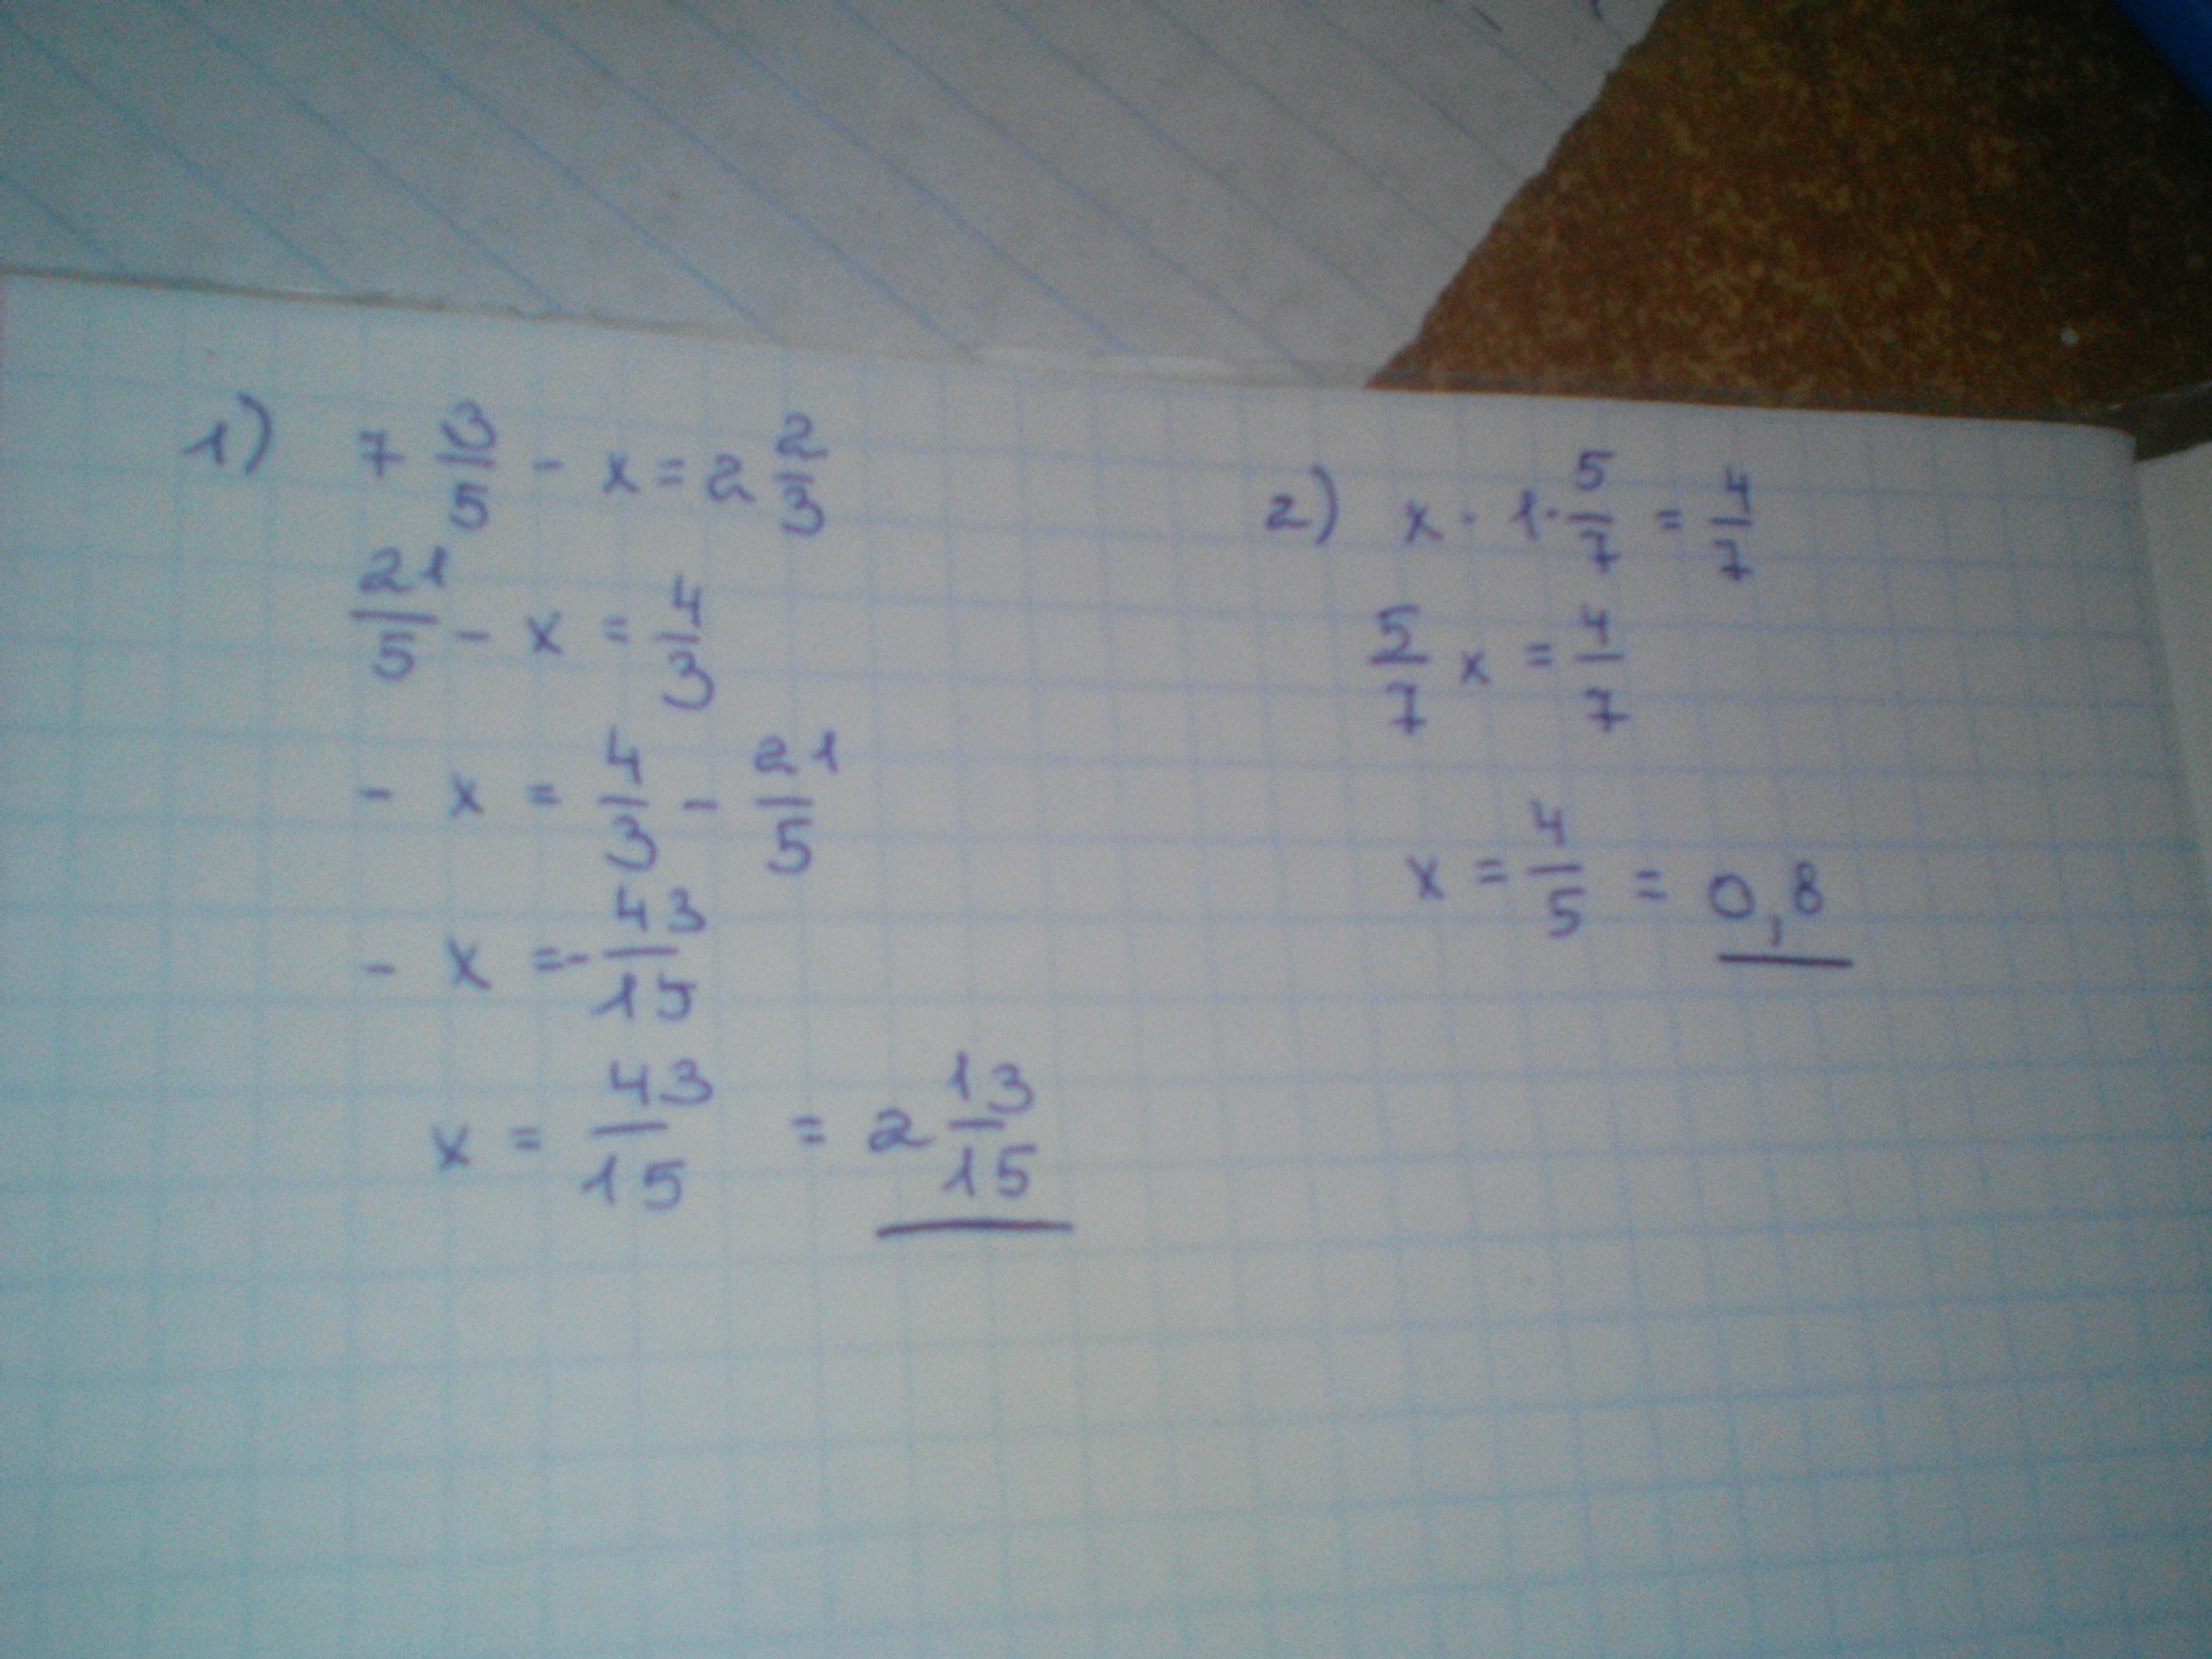 1) 7 3/5 - x = 2 2/3
21/5 - x = 4/3
- x = 4/3 - 21/5
- x = - 43/15
x = 43/15 = 2 13/15
2) x · 1 · 5/7 = 4/7
5/7 x = 4/7
x = 4/5 = 0,8